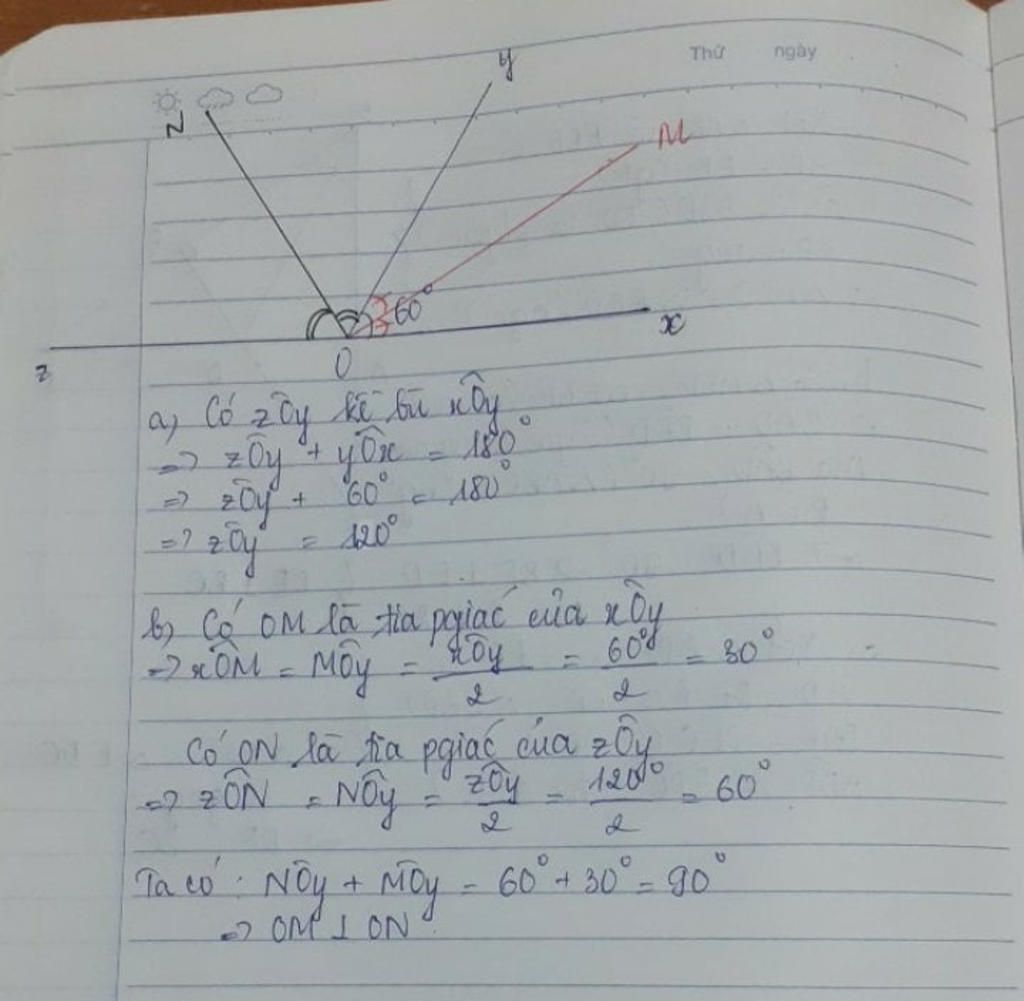 Thứ ngày
y
N
M
60°
x
z
O
a) Có zÔy kề bù xÔy
=> zÔy + yÔx = 180°
=> zÔy + 60° = 180°
=> zÔy = 120°
b) Có OM là tia pgiác của xÔy
=> xÔM = MÔy = xÔy/2 = 60°/2 = 30°
Có ON là tia pgiác của zÔy
=> zÔN = NÔy = zÔy/2 = 120°/2 = 60°
Ta có : NÔy + MÔy = 60° + 30° = 90°
=> OM ⊥ ON